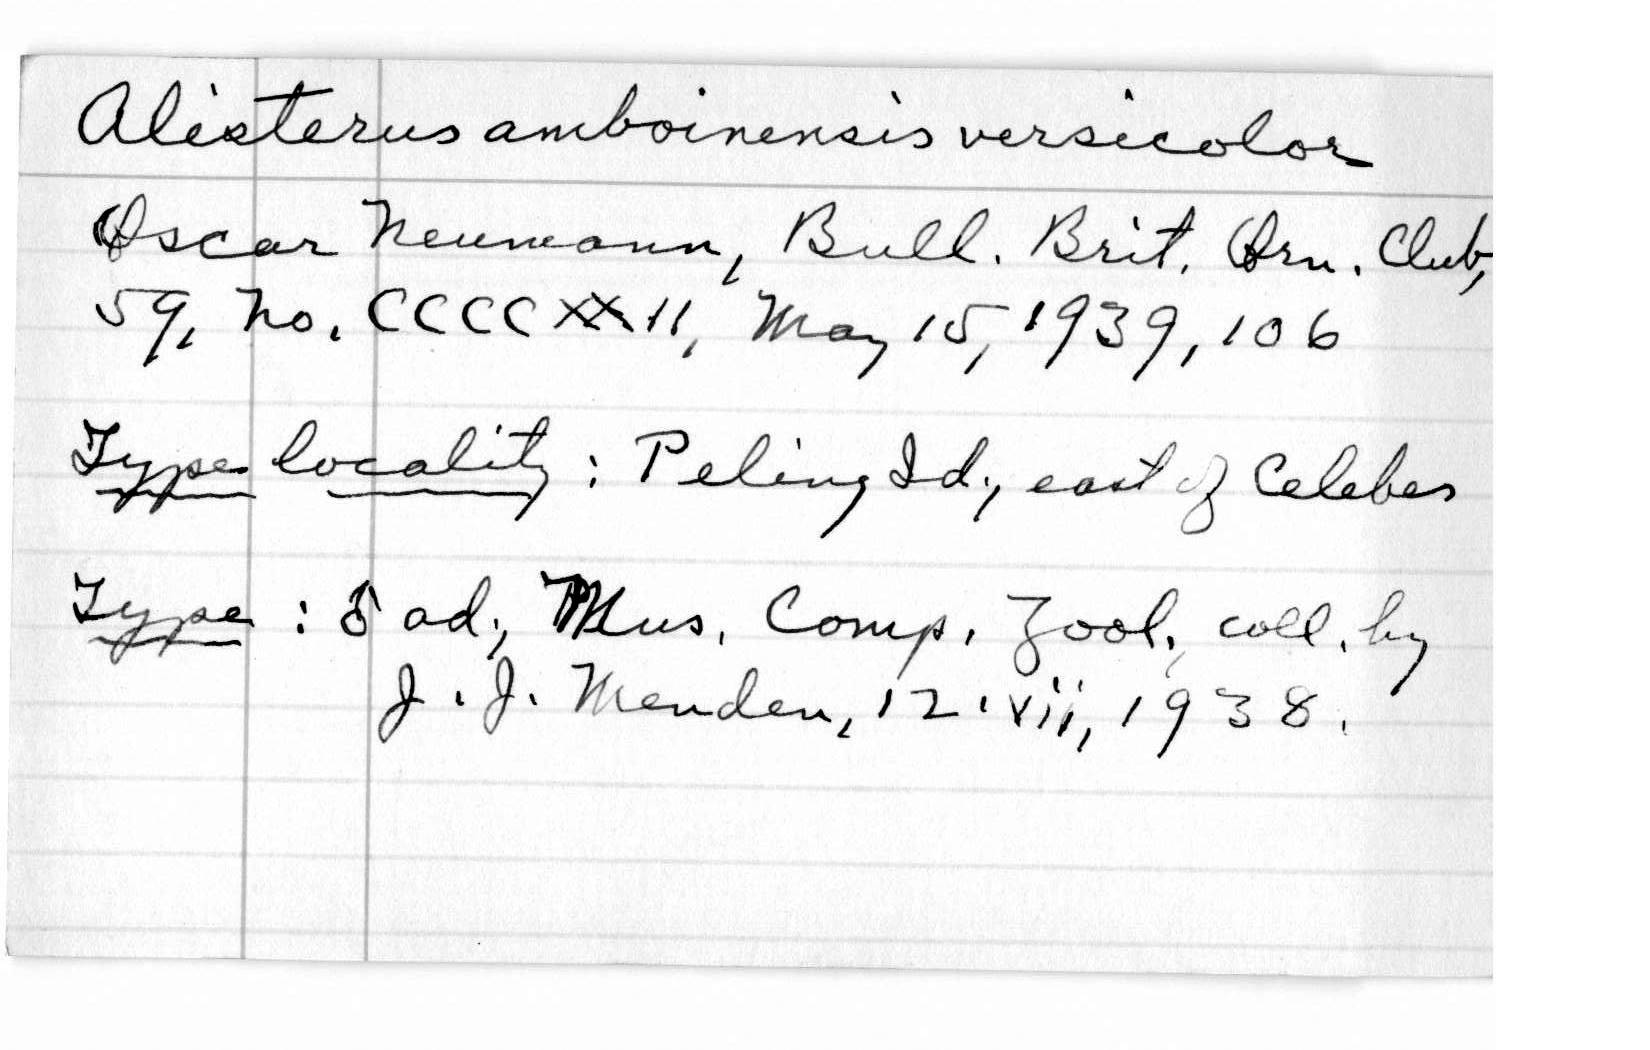 Alisterus amboinensis versicolor
Oscar Neumann, Bull. Brit. Orn. Club,
59, No. CCCCXXII, May 15, 1939, 106
Type locality: Peling Id., east of Celebes
Type: ♂ ad., Mus. Comp. Zool., coll. by
J. J. Menden, 12.vii, 1938.